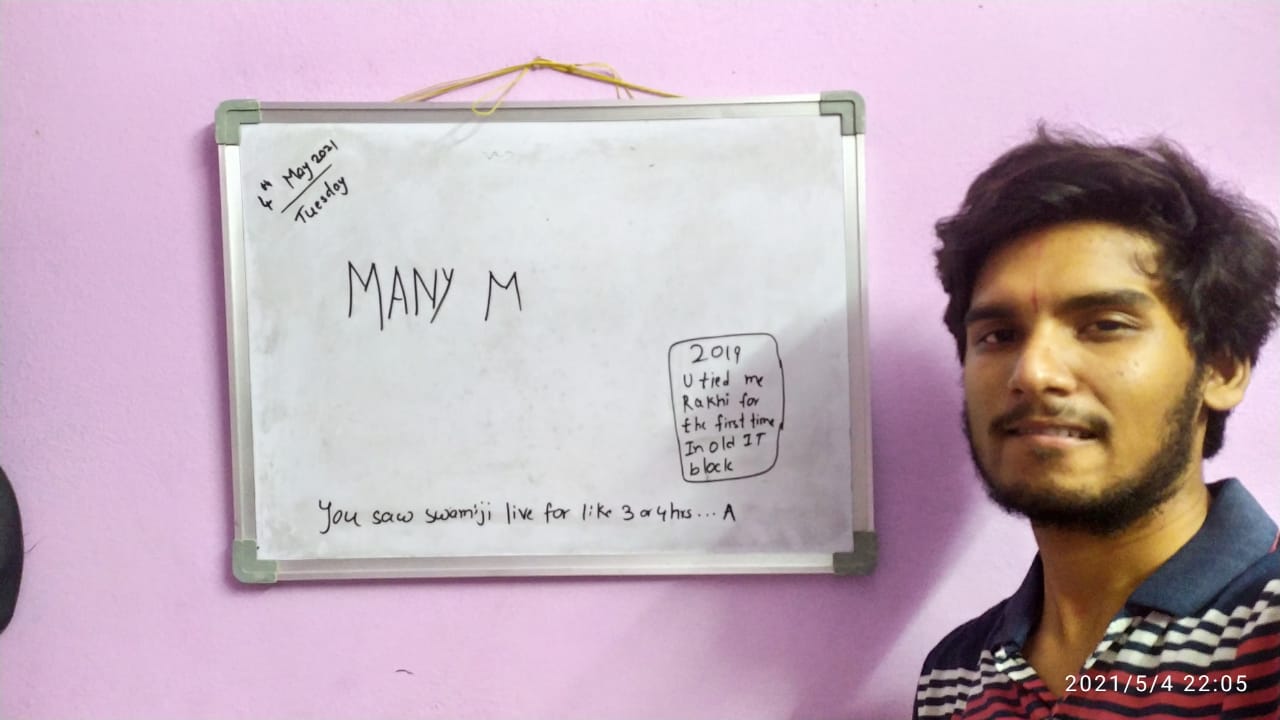 4th May 2021
Tuesday
MANY M
2019
U tied me
Rakhi for
the first time
In old IT
block
You saw swamiji live for like 3 or 4 hrs... A
2021/5/4 22:05